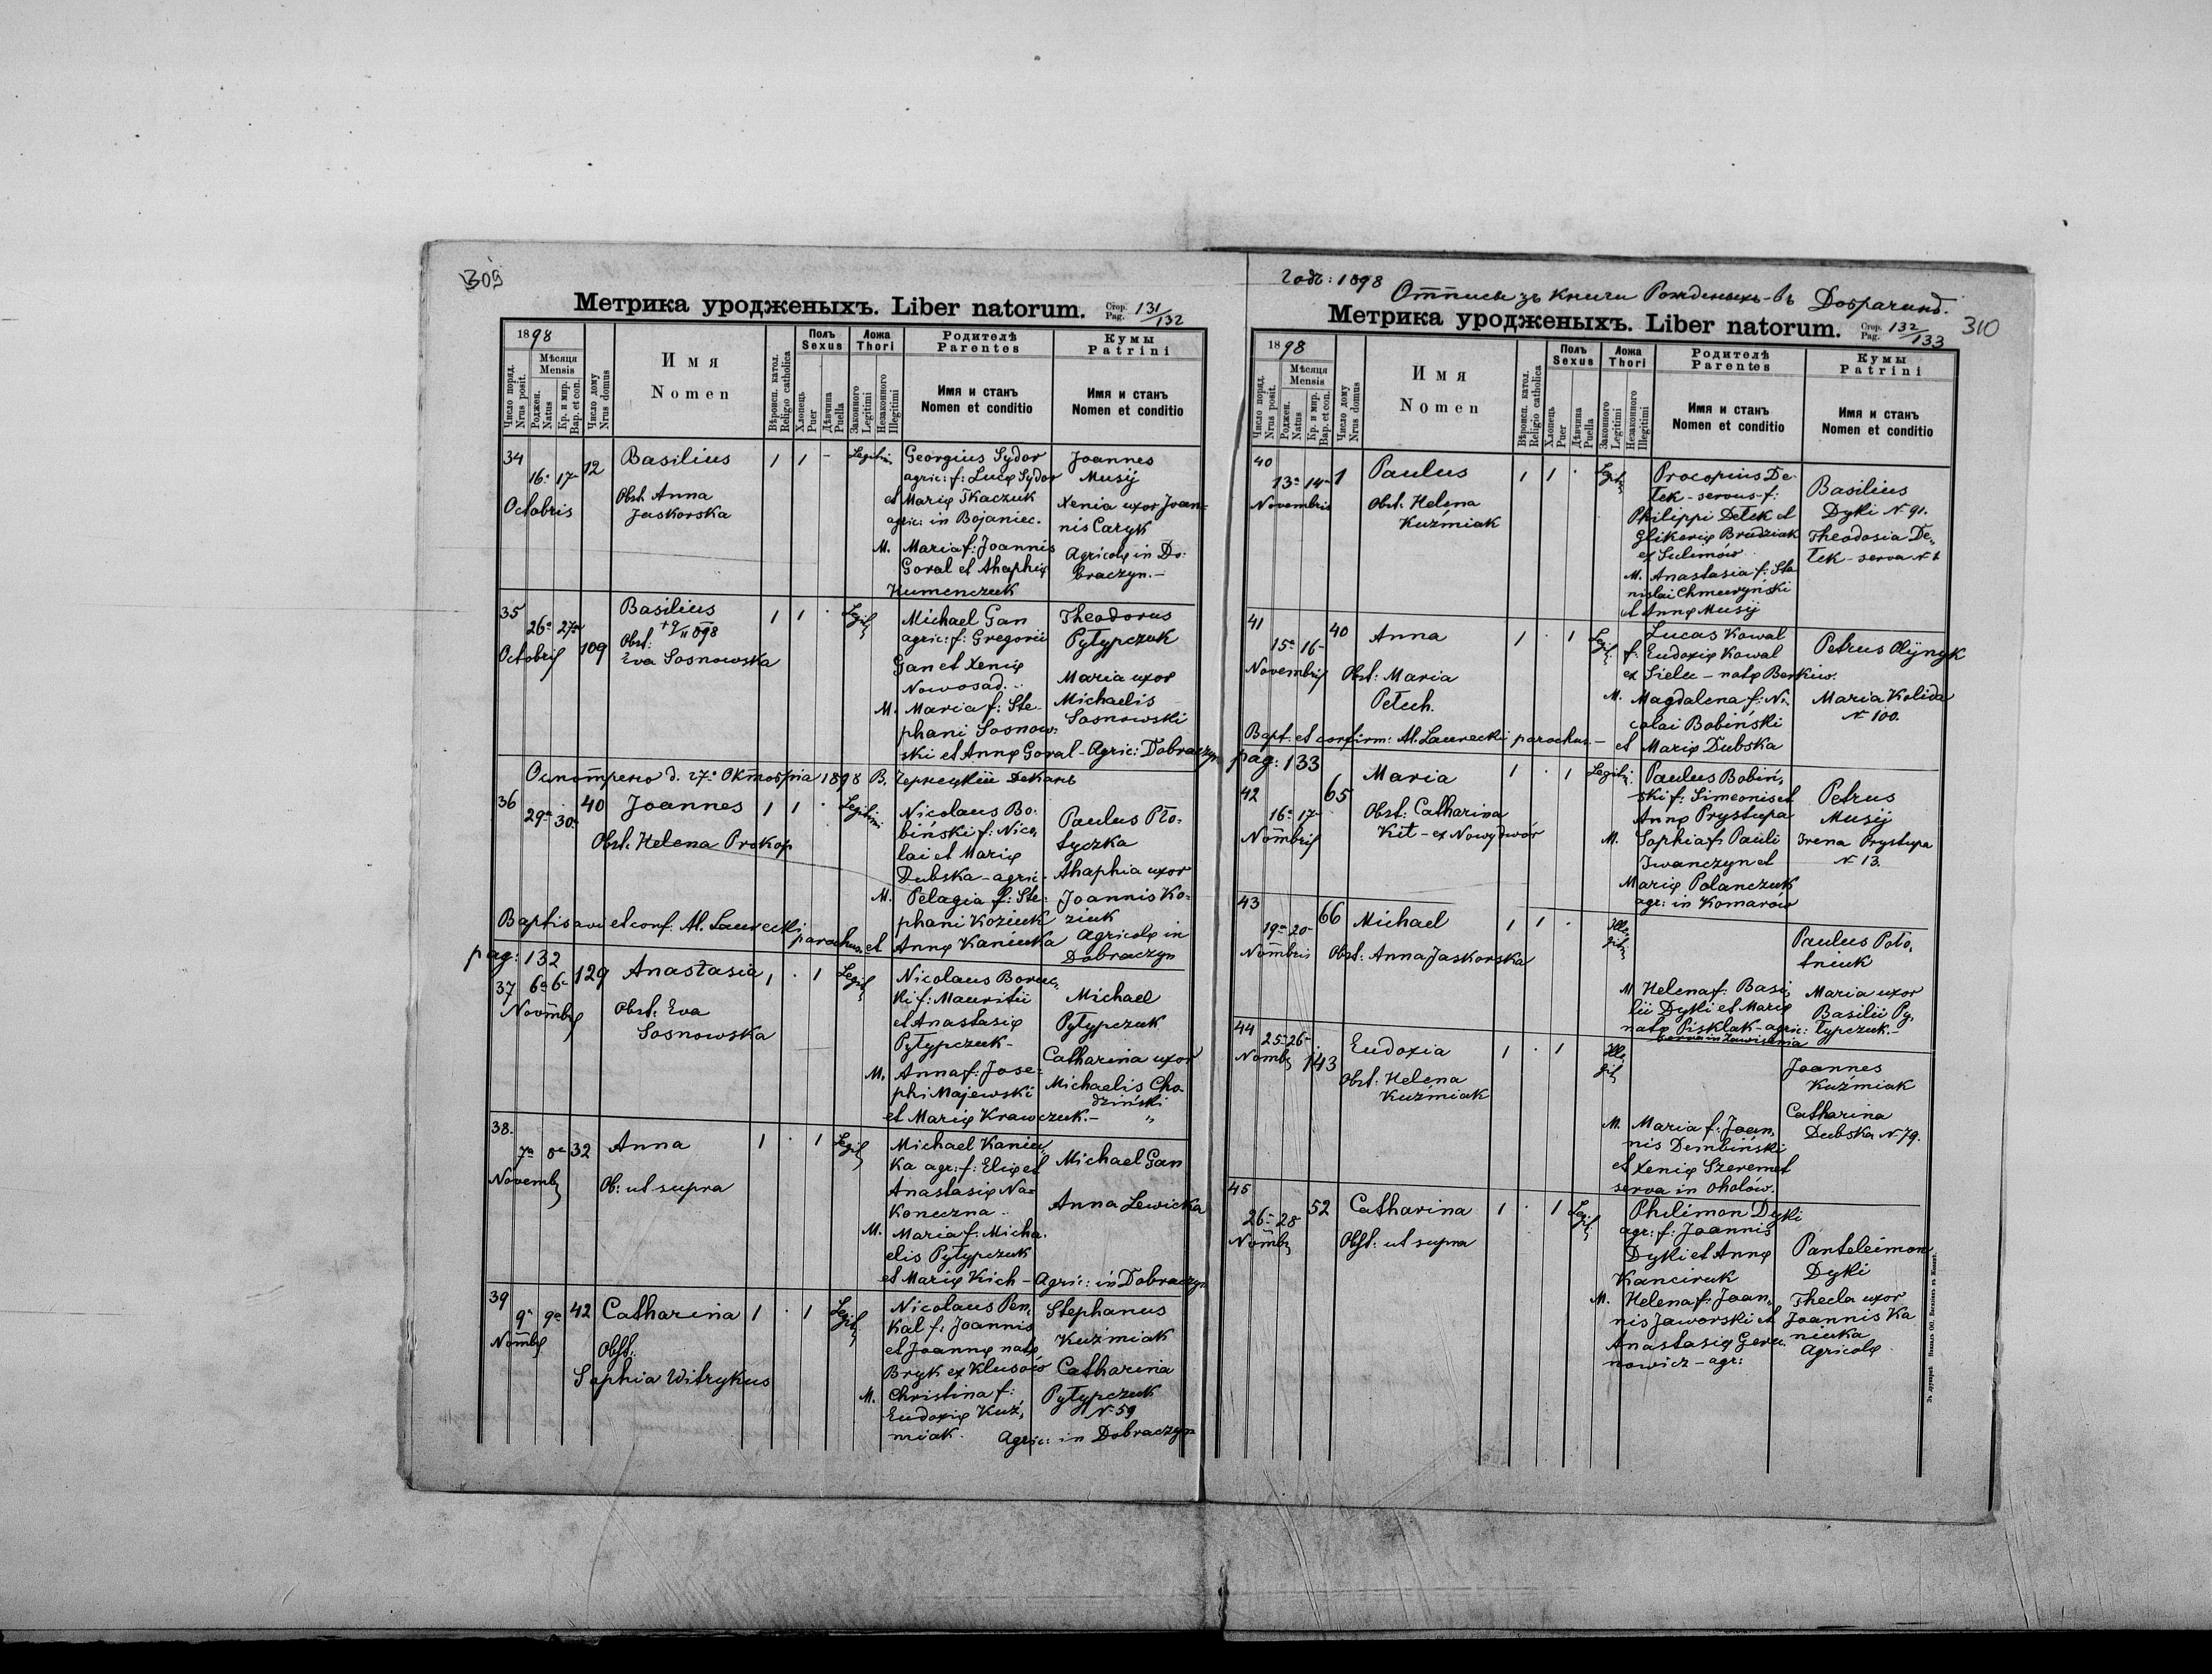 309
Метрика уродженыхъ. Liber natorum. Стор. Pag. 131/132
1898
Число поряд. Nrus posit.
Мѣсяця Mensis
Роджен. Natus
Кр. и мир. Bap. et con.
Число дому Nrus domus
Имя
Nomen
Вѣроисп. катол. Religio catholica
Полъ Sexus
Хлопець Puer
Дѣвчина Puella
Ложа Thori
Законного Legitimi
Незаконного Illegitimi
Родителѣ Parentes
Имя и станъ
Nomen et conditio
Кумы Patrini
Имя и станъ
Nomen et conditio
34
16a 17a 12 Basilius 1 1 - Legitimi
Octobris
Obst. Anna
Jaskorska
Georgius Sydor
agric: f: Lucę Sydor
et Marię Tkaczuk
agric: in Bojaniec.
M. Maria f: Joannis
Goral et Ahaphię
Humenczuk
Joannes
Musij
Xenia uxor Joan-
nis Caryk
Agricolę in Do-
braczyn.-
35
26a 27a 109 Basilius 1 1 · Legit
Octobris
+9/II 898
Obst:
Eva Sosnowska
Michael Gan
agric: f: Gregorii
Gan et Xenię
Nowosad.
M. Maria f: Ste-
phani Sosnow-
ski et Annę Goral - Agric: Dobraczyn
Theodorus
Pyłypczuk
Maria uxor
Michaelis
Sosnowski
Осмотрено д. 27. Октоврія 1898 В. Чернецкій Деканъ
36
29a 30a 40 Joannes 1 1 · Legitimi
Obst. Helena Prokop
Nicolaus Bo-
biński f: Nico-
lai et Marię
Dubska - agric-
M. Pelagia f: Ste-
phani Koziuk
et Annę Kaniuka
Paulus Pło-
tyczka
Ahaphia uxor
Joannis Ko-
ziuk
Agricolę in
Dobraczyn
Baptisavi et conf. Al. Laurecki parochus
pag: 132
37 6a 6a 129 Anastasia 1 · 1 Legit
Novmbr
Obst: Eva
Sosnowska
Nicolaus Boruc-
ki f: Mauritii
et Anastasię
Pyłypczuk-
M. Anna f: Jose-
phi Majewski
et Marię Krawczuk.-
Michael
Pyłypczuk
Catharina uxor
Michaelis Cho-
dziński
"
38.
7a 8a 32 Anna 1 · 1 Legit
Novemb
Ob: ut supra
Michael Kaniu-
ka agr: f: Elię et
Anastasię Na-
koneczna.
M. Maria f: Micha-
elis Pyłypczuk
et Marię Kich - Agric: in Dobraczyn
Michael Gan
Anna Lewicka
39
9a 9a 42 Catharina 1 · 1 Legit
Nombr
Obst:
Sophia Witrykus
Nicolaus Pen-
kal f: Joannis
et Joannę natę
Bryk ex Klusów
M. Christina f:
Eudoxię Kuź-
miak.
Stephanus
Kuźmiak
Catharina
Pyłypczuk
N-59
Agric: in Dobraczyn
Годъ: 1898 Отписъ зъ книги Рожденыхъ въ Добрачинѣ.
310
Метрика уродженыхъ. Liber natorum. Стор. Pag. 132/133
1898
Число поряд. Nrus posit.
Мѣсяця Mensis
Роджен. Natus
Кр. и мир. Bap. et con.
Число дому Nrus domus
Имя
Nomen
Вѣроисп. катол. Religio catholica
Полъ Sexus
Хлопець Puer
Дѣвчина Puella
Ложа Thori
Законного Legitimi
Незаконного Illegitimi
Родителѣ Parentes
Имя и станъ
Nomen et conditio
Кумы Patrini
Имя и станъ
Nomen et conditio
40
13a 14a 1 Paulus 1 1 · Legit
Novembris
Obst: Helena
Kuźmiak
Procopius De-
łek - servus - f:
Philippi Dełek et
Glikerię Brudziak
ex Sulimów
M. Anastasia f: Sta-
nislai Chmuryński
et Annę Musij
Basilius
Dyki N 91.
Theodosia De-
łek - serva N 1
41
15a 16a 40 Anna 1 · 1 Legit
Novembris
Obst: Maria
Petech.
Lucas Kowal
f: Eudoxię Kowal
ex Sielec - natę Benkiw.
M. Magdalena f: Ni-
colai Bobiński
et Marię Dubska
Petrus Olijnyk
Maria Kolida
N 100.
Bapt. et confirm: Al. Laurecki parochus -
pag: 133
42
16a 17a 65 Maria 1 · 1 Legitim
Nombris
Obst: Catharina
Kit - ex Nowydwór
Paulus Bobiń-
ski f: Simeonis et
Annę Prystupa
M. Sophia f: Pauli
Iwanczyn et
Marię Polanczuk
agr: in Komarów
Petrus
Musij
Irena Prystupa
N 13.
43
19a 20a 66 Michael 1 1 · Ille-
git
Nombris
Obst: Anna Jaskorska
M. Helena f: Basi-
lii Dyki et Marię
natę Pisklak - agric:
serva in Zawisznia
Paulus Poto-
niuk
Maria uxor
Basilii Py-
łypczuk.-
44
25a 26a 143 Eudoxia 1 · 1 Ille-
git
Nomb
Obst: Helena
Kuźmiak
M. Maria f: Joan-
nis Dembiński
et Xenię Szeremet
serva in Ohołów.
Joannes
Kuźmiak
Catharina
Dubska N 79.
45
26a 28 52 Catharina 1 · 1 Legit
Nomb
Obst: ut supra
Philimon Dyki
agr: f: Joannis
Dyki et Annę
Kanciruk
M. Helena f: Joan-
nis Jaworski et
Anastasię Geru-
nowicz - agr:
Panteleimon
Dyki
Thecla uxor
Joannis Ka
niuka
Agricolę